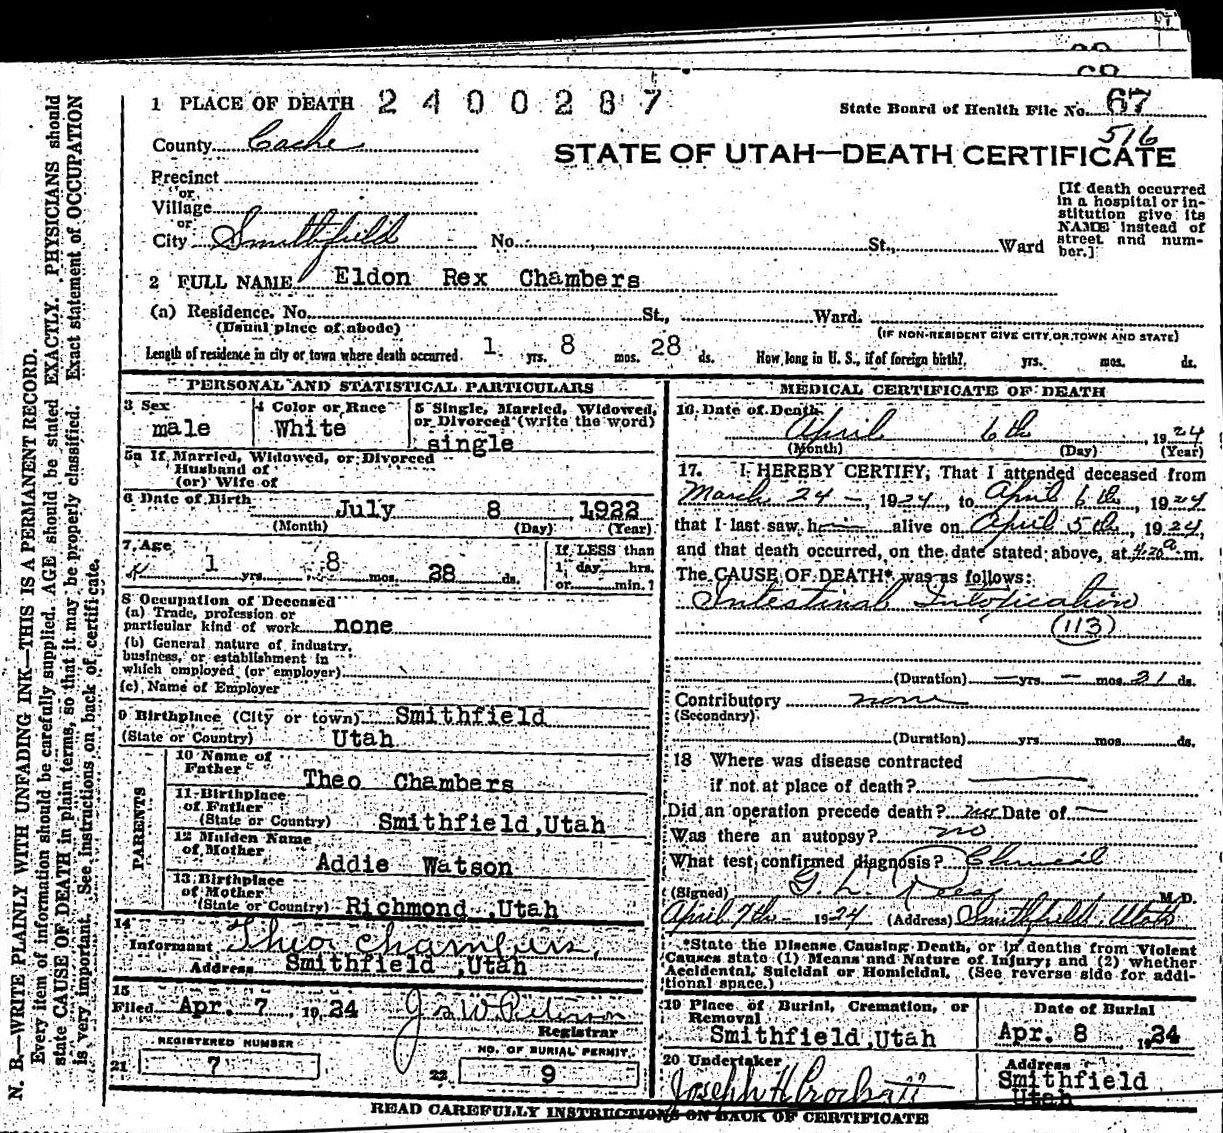 68
1 PLACE OF DEATH 2400287 State Board of Health File No. 67
516
County Cache
STATE OF UTAH—DEATH CERTIFICATE
Precinct
or
Village
or
City Smithfield No. , St., Ward
[If death occurred
in a hospital or in-
stitution give its
NAME instead of
street and num-
ber.]
2 FULL NAME Eldon Rex Chambers
(a) Residence. No. St., Ward.
(Usual place of abode) (IF NON-RESIDENT GIVE CITY OR TOWN AND STATE)
Length of residence in city or town where death occurred. 1 yrs. 8 mos. 28 ds. How long in U. S., if of foreign birth? yrs. mos. ds.
PERSONAL AND STATISTICAL PARTICULARS
3 Sex
male
4 Color or Race
White
5 Single, Married, Widowed,
or Divorced (write the word)
single
5a If Married, Widowed, or Divorced
Husband of
(or) Wife of
6 Date of Birth July 8 , 1922
(Month) (Day) (Year)
7 Age
1 yrs. 8 mos. 28 ds.
If LESS than
1 day hrs.
or min.?
8 Occupation of Deceased
(a) Trade, profession or
particular kind of work none
(b) General nature of industry,
business, or establishment in
which employed (or employer)
(c) Name of Employer
9 Birthplace (City or town) Smithfield
(State or Country) Utah
PARENTS
10 Name of
Father Theo Chambers
11 Birthplace
of Father
(State or Country) Smithfield,Utah
12 Maiden Name
of Mother Addie Watson
13 Birthplace
of Mother
(State or Country) Richmond ,Utah
14
Informant Theo Chambers
Address Smithfield ,Utah
15
Filed Apr. 7 19 24
Registrar
REGISTERED NUMBER
21 7
NO. OF BURIAL PERMIT.
22 9
MEDICAL CERTIFICATE OF DEATH
16 Date of Death
April 6th , 1924
(Month) (Day) (Year)
17. I HEREBY CERTIFY, That I attended deceased from
March 24 - 1924, to April 6th, 1924
that I last saw h— alive on April 5th, 1924,
and that death occurred, on the date stated above, at 4:20 a m.
The CAUSE OF DEATH* was as follows:
Intestinal Intoxication
(113)
(Duration) — yrs. — mos. 21 ds.
Contributory none
(Secondary)
(Duration) yrs. mos. ds.
18 Where was disease contracted
if not at place of death?
Did an operation precede death? no Date of —
Was there an autopsy? no
What test confirmed diagnosis? Clinical
(Signed) G. L. Rees M. D.
April 7th - 1924 (Address) Smithfield, Utah
*State the Disease Causing Death, or in deaths from Violent
Causes state (1) Means and Nature of Injury; and (2) whether
Accidental, Suicidal or Homicidal. (See reverse side for addi-
tional space.)
19 Place of Burial, Cremation, or
Removal
Smithfield,Utah
Date of Burial
Apr. 8 1924
20 Undertaker
Address
Smithfield
Utah
READ CAREFULLY INSTRUCTIONS ON BACK OF CERTIFICATE
N. B.—WRITE PLAINLY WITH UNFADING INK—THIS IS A PERMANENT RECORD.
Every item of information should be carefully supplied. AGE should be stated EXACTLY. PHYSICIANS should
state CAUSE OF DEATH in plain terms, so that it may be properly classified. Exact statement of OCCUPATION
is very important. See instructions on back of certificate.